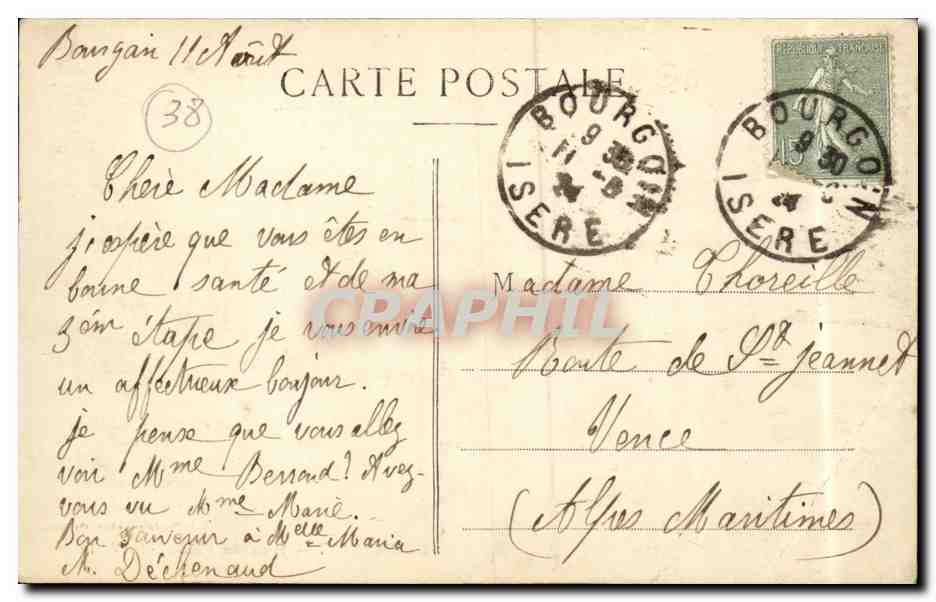 Bourgoin 11 Août
CARTE POSTALE
38
REPUBLIQUE FRANÇAISE
15
BOURGOIN
9 30
11 - 8
ISERE
BOURGOIN
9 30
ISERE
Chère Madame
j'espère que vous êtes en
bonne santé et de ma
3èm étape je vous envoie
un affectueux bonjour.
je pense que vous allez
voir Mme Berraud? Avez-
vous vu Mme Marie.
Bon souvenir à Melle Maria
M. Déchenaud
Madame Thoreille
Route de St jeannet
Vence
(Alpes Maritimes)
CPAPHIL